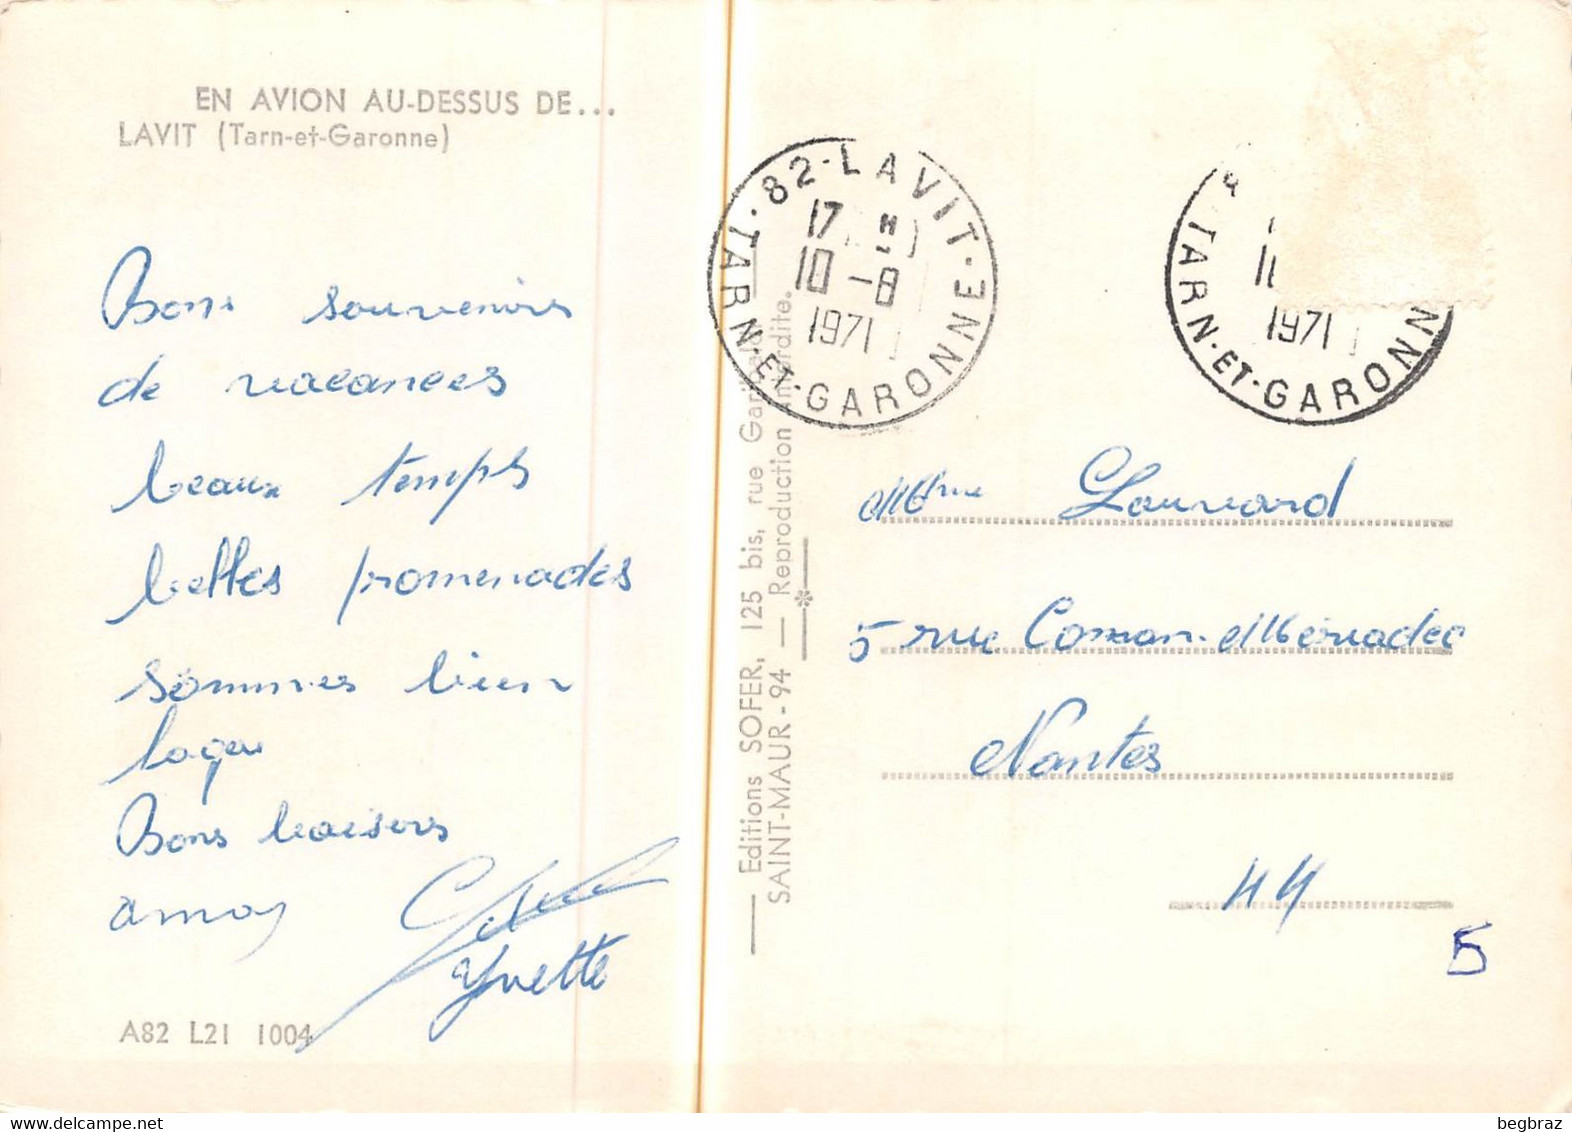 EN AVION AU-DESSUS DE...
LAVIT (Tarn-et-Garonne)
Bons souvenirs
de vacances
beaux temps
belles promenades
sommes bien
loger
Bons baisers
Yvette
A82 L21 1004
Editions SOFER, 125 bis, rue Garibaldi
SAINT-MAUR - 94 — Reproduction interdite.
82-LAVIT
17 H
10 -8
1971
TARN-ET-GARONNE
1971
TARN-ET-GARONN
Mme Louvard
5 rue Conan-Mériadec
Nantes
44
5
begbraz